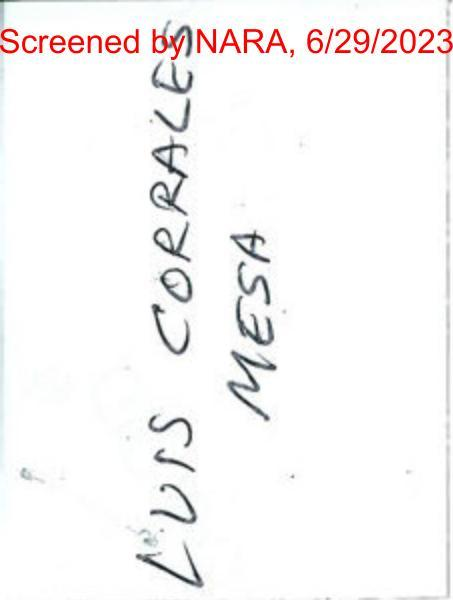 Screened by NARA, 6/29/2023
LUIS CORRALES
MESA